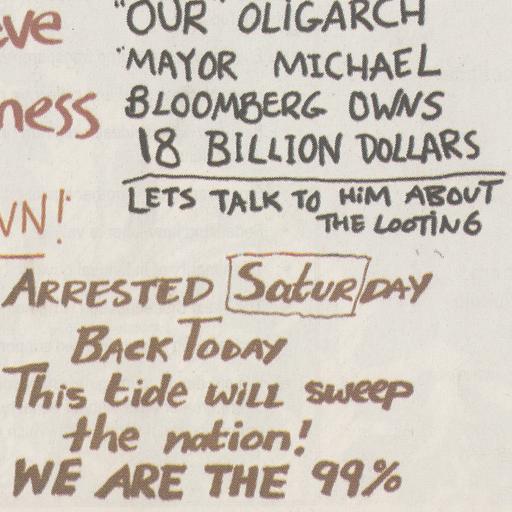 eve
ness
WN!
"OUR" OLIGARCH
"MAYOR MICHAEL
BLOOMBERG OWNS
18 BILLION DOLLARS
LETS TALK TO HiM ABOUT
THE LOOTING
ARRESTED SaturDAY
BACK TODAY
This tide will sweep
the nation!
WE ARE THE 99%